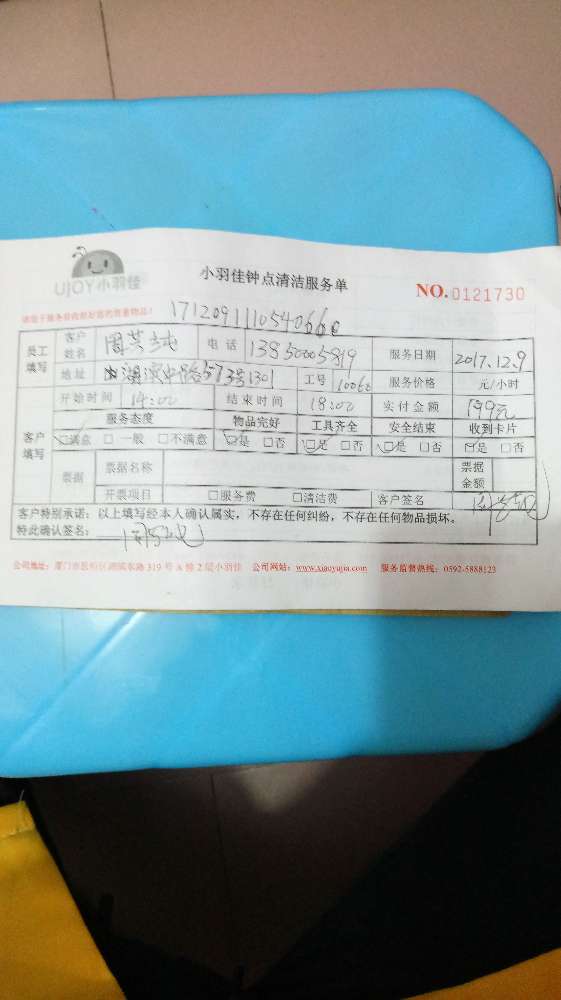 UJOY小羽佳
小羽佳钟点清洁服务单
NO.0121730
请您于服务前收拾好您的贵重物品!
171209111054066
员工填写 客户姓名 周 电话 13850005819 服务日期 2017.12.9
地址 湖滨中路573号1301 工号 服务价格 元/小时
开始时间 14:00 结束时间 18:00 实付金额 199元
客户填写 服务态度 物品完好 工具齐全 安全结束 收到卡片
☑满意 □一般 □不满意 ☑是 □否 ☑是 □否 ☑是 □否 ☑是 □否
票据 票据名称 票据金额
开票项目 □服务费 □清洁费 客户签名
客户特别承诺:以上填写经本人确认属实,不存在任何纠纷,不存在任何物品损坏。
特此确认签名:
公司地址:厦门市思明区湖滨东路 319 号 A 栋 2 层小羽佳 公司网站:www.xiaoyujia.com 服务监督热线:0592-5888123